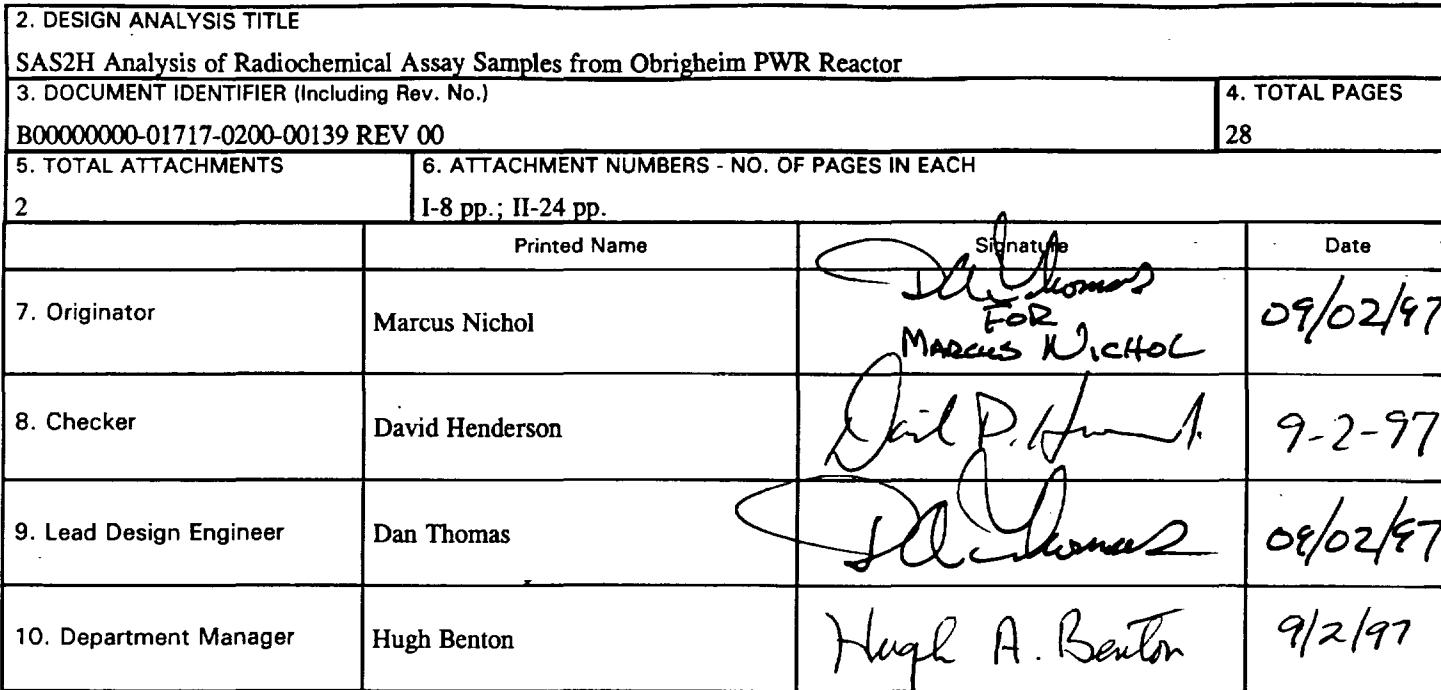 2. DESIGN ANALYSIS TITLE
SAS2H Analysis of Radiochemical Assay Samples from Obrigheim PWR Reactor
3. DOCUMENT IDENTIFIER (Including Rev. No.)
4. TOTAL PAGES
B00000000-01717-0200-00139 REV 00
28
5. TOTAL ATTACHMENTS
6. ATTACHMENT NUMBERS - NO. OF PAGES IN EACH
2
I-8 pp.; II-24 pp.
Printed Name
Signature
Date
7. Originator
Marcus Nichol
DA Thomas
FOR
MARCUS NICHOL
09/02/97
8. Checker
David Henderson
9-2-97
9. Lead Design Engineer
Dan Thomas
DA Thomas
09/02/97
10. Department Manager
Hugh Benton
Hugh A. Benton
9/2/97